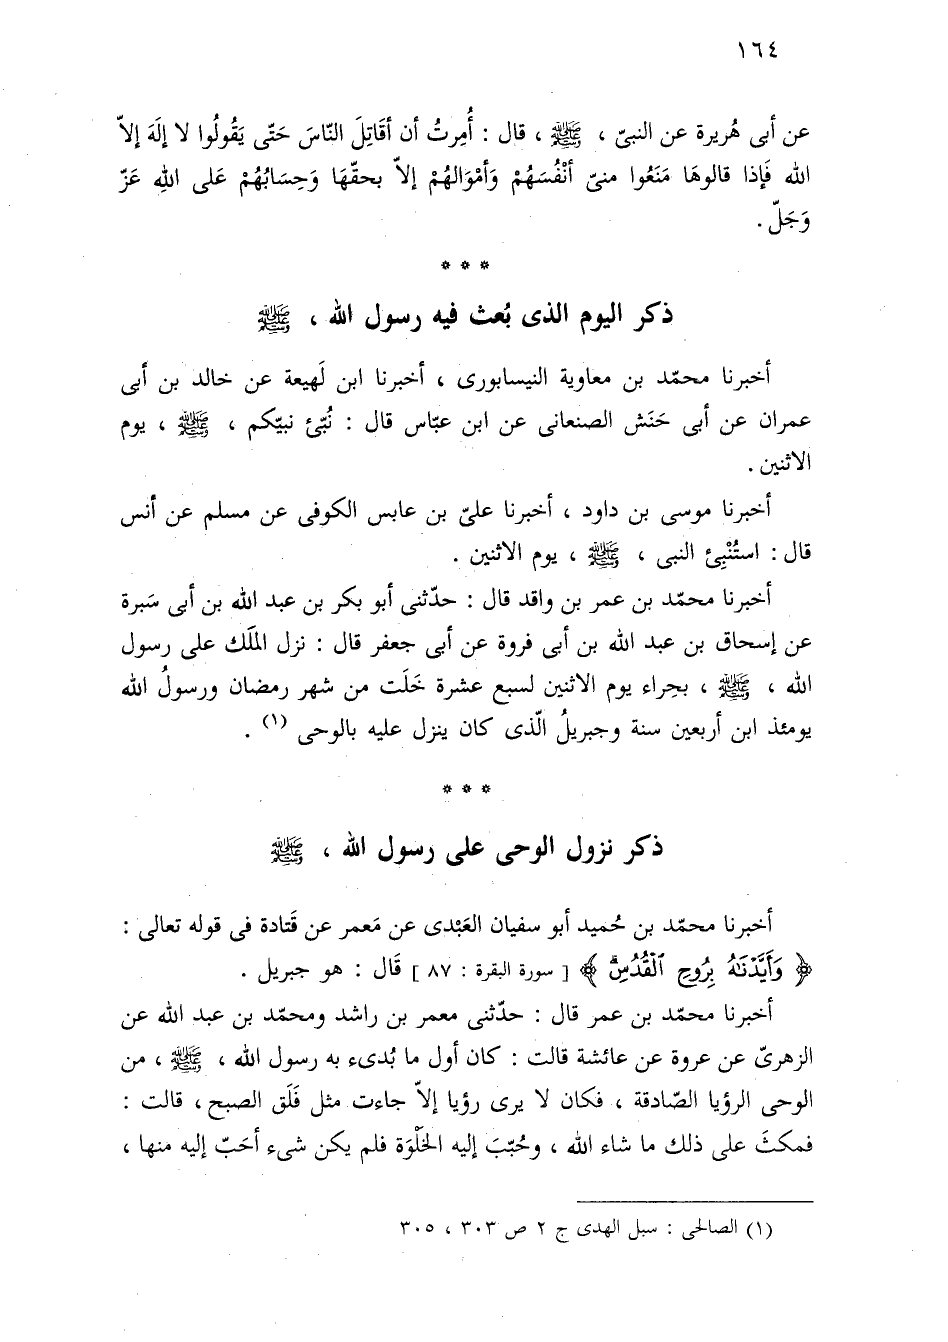 ١٦٤
عن أبى هُريرة عن النبىّ ، ﷺ ، قال : أُمِرتُ أن أقَاتِلَ النّاسَ حَتّى يَقُولُوا لا إلَهَ إلاّ
الله فَإذا قالوهَا مَنَعُوا منىّ أنْفُسَهُمْ وَأمْوَالهُمْ إلاّ بحقّهَا وَحِسَابُهُمْ عَلى اللهِ عَزّ
وَجَلّ .
* * *
ذكر اليوم الذى بُعث فيه رسول الله ، ﷺ
أخبرنا محمّد بن معاوية النيسابورى ، أخبرنا ابن لَهيعة عن خالد بن أبى
عمران عن أبى حَنَش الصنعانى عن ابن عبّاس قال : نُبّئ نبيّكم ، ﷺ ، يوم
الاثنين .
أخبرنا موسى بن داود ، أخبرنا علىّ بن عابس الكوفى عن مسلم عن أنس
قال : استُنْبِئ النبى ، ﷺ ، يوم الاثنين .
أخبرنا محمّد بن عمر بن واقد قال : حدّثنى أبو بكر بن عبد الله بن أبى سَبرة
عن إسحاق بن عبد الله بن أبى فروة عن أبى جعفر قال : نزل الملَك على رسول
الله ، ﷺ ، بحِراء يوم الاثنين لسبع عشرة خَلَت من شهر رمضان ورسولُ الله
يومئذ ابن أربعين سنة وجبريلُ الّذى كان ينزل عليه بالوحى (١) .
* * *
ذكر نزول الوحى على رسول الله ، ﷺ
أخبرنا محمّد بن حُميد أبو سفيان العَبْدى عن مَعمر عن قَتادة فى قوله تعالى :
﴿ وَأَيَّدْنَٰهُ بِرُوحِ ٱلْقُدُسِۗ ﴾ [ سورة البقرة : ٨٧ ] قَال : هو جبريل .
أخبرنا محمّد بن عمر قال : حدّثنى معمر بن راشد ومحمّد بن عبد الله عن
الزهرىّ عن عروة عن عائشة قالت : كان أول ما بُدىء به رسول الله ، ﷺ ، من
الوحى الرؤيا الصّادقة ، فكان لا يرى رؤيا إلاّ جاءت مثل فَلَق الصبح ، قالت :
فمكثَ على ذلك ما شاء الله ، وحُبّبَ إليه الخَلْوَة فلم يكن شىء أحَبّ إليه منها ،
(١) الصالحى : سبل الهدى ج ٢ ص ٣٠٣ ، ٣٠٥